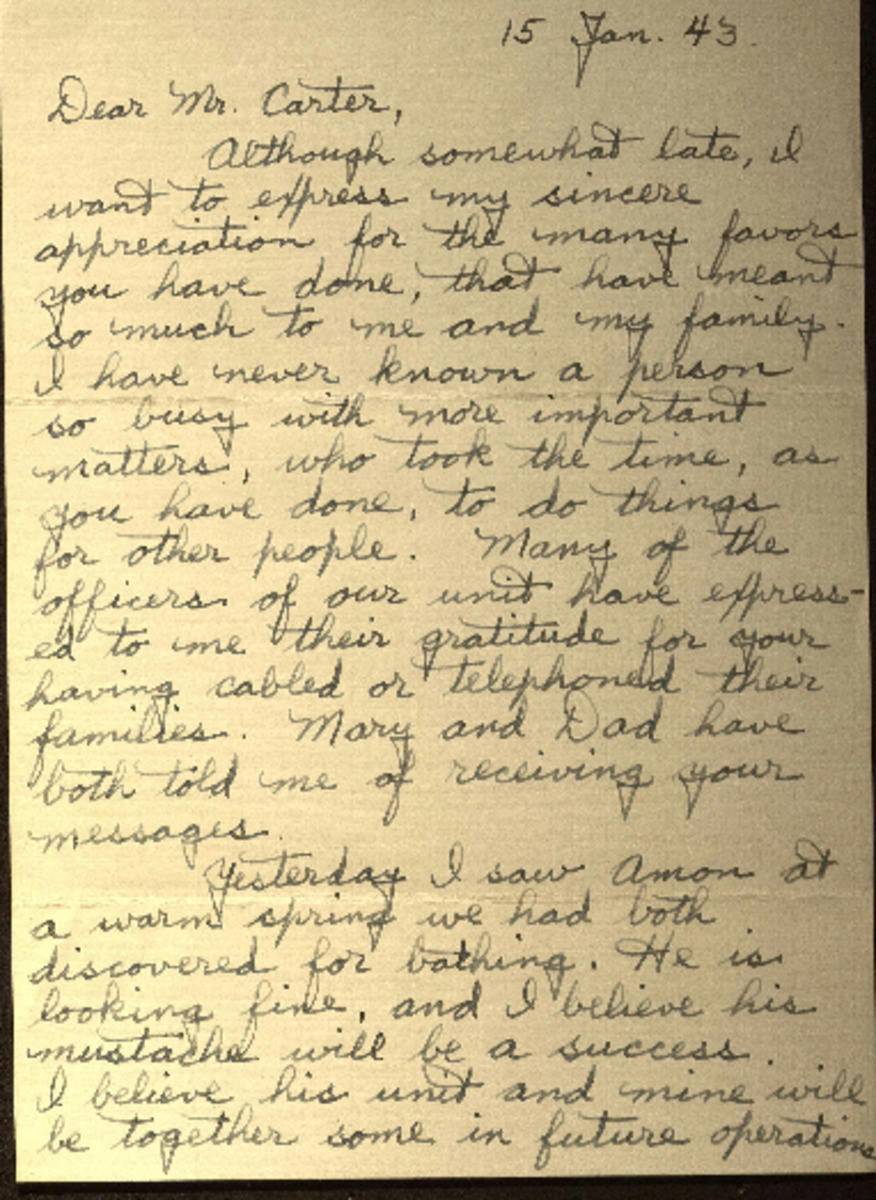 15 Jan. 43.
Dear Mr. Carter,
Although somewhat late, I
want to express my sincere
appreciation for the many favors
you have done, that have meant
so much to me and my family.
I have never known a person
so busy with more important
matters, who took the time, as
you have done, to do things
for other people. Many of the
officers of our unit have express-
ed to me their gratitude for your
having cabled or telephoned their
families. Mary and Dad have
both told me of receiving your
messages.
Yesterday I saw Amon at
a warm spring we had both
discovered for bathing. He is
looking fine, and I believe his
mustache will be a success.
I believe his unit and mine will
be together some in future operations